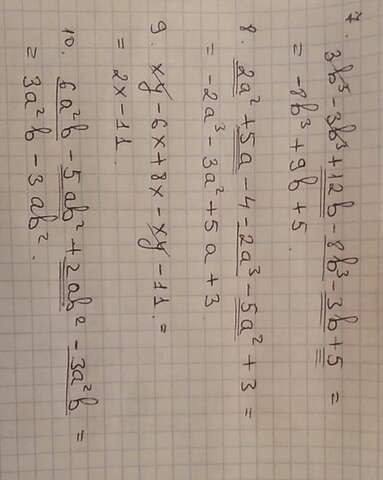 7. 3b³ - 3b³ + 12b - 8b³ - 3b + 5 =
= -8b³ + 9b + 5.
8. 2a² + 5a - 4 - 2a³ - 5a² + 3 =
= -2a³ - 3a² + 5a + 3
9. xy - 6x + 8x - xy - 11. =
= 2x - 11.
10. 6a²b - 5ab² + 2ab² - 3a²b =
= 3a²b - 3ab².